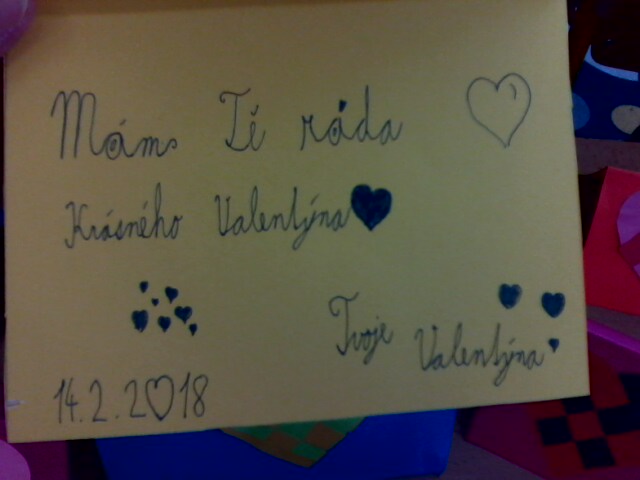 Mám Tě ráda
Krásného Valentýna
Tvoje Valentýna
14.2.2018